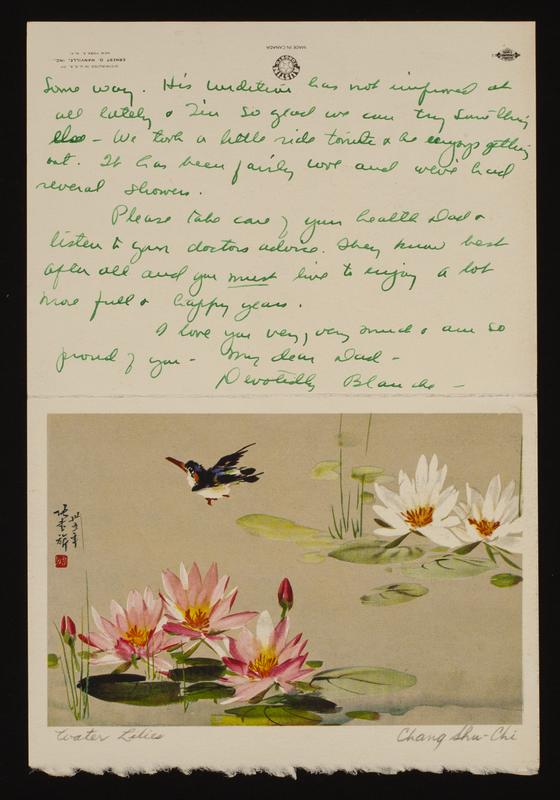 MADE IN CANADA
DISTRIBUTED IN U.S.A. BY
ERNEST D. MANVILLE, INC.,
NEW YORK, N.Y.
Some way. His condition has not improved at
all lately & I'm so glad we can try something
else - We took a little ride tonite & he enjoys getting
out. It has been fairly cool and we've had
several showers.
Please take care of your health Dad &
listen to your doctors advice. They know best
after all and you must live to enjoy a lot
more full & happy years.
I love you very, very much & am so
proud of you - my dear Dad -
Devotedly Blanche -
Water Lilies
Chang Shu-Chi